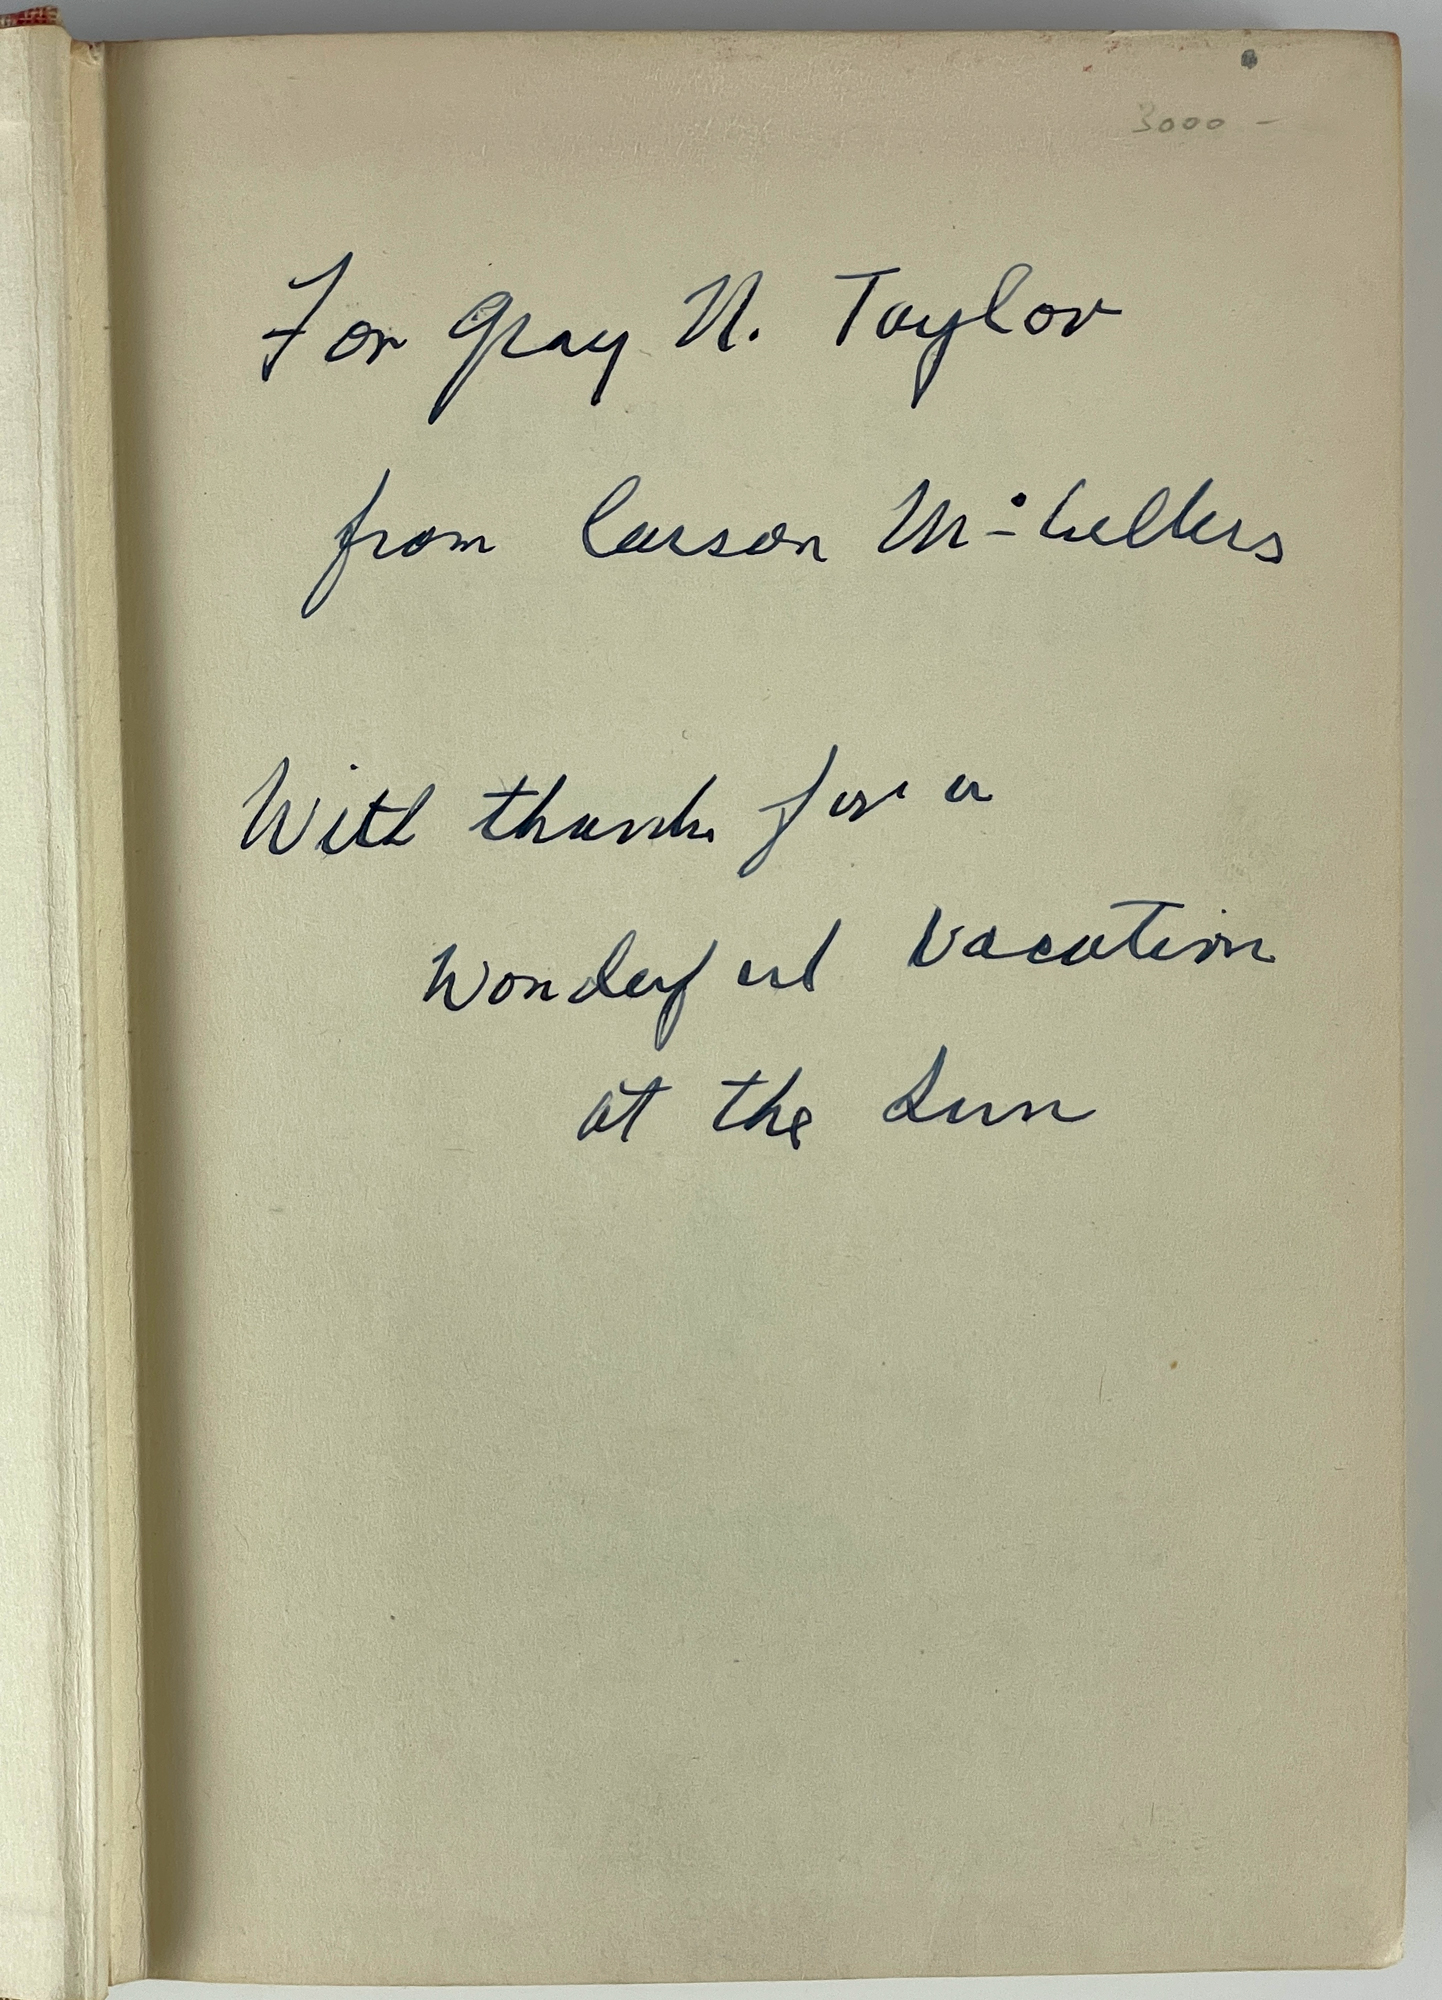 3000 -
For Gray N. Taylor
from Carson McCullers
With thanks for a
Wonderful Vacation
at the Sun